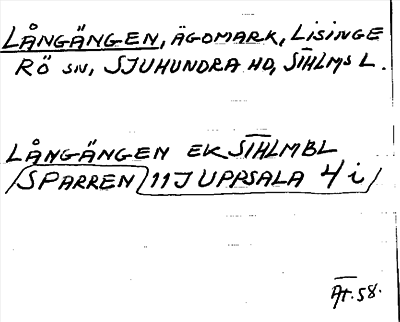 LÅNGÄNGEN, ÄGOMARK, LISINGE
RÖ SN, SJUHUNDRA HD, STHLMS L.
LÅNGÄNGEN EK STHLMBL
SPARREN 11J UPPSALA 4i
AT.58.